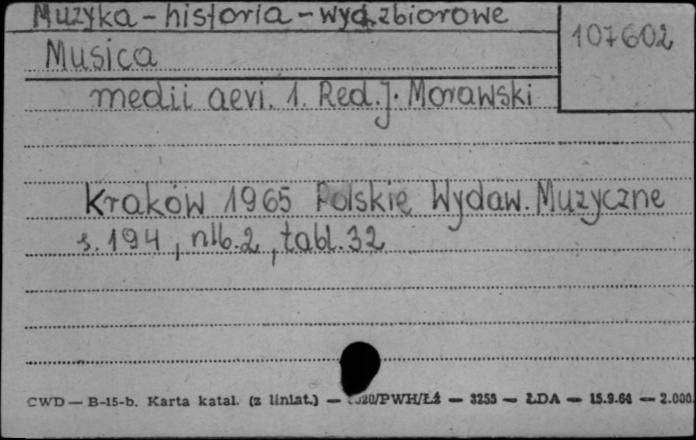 Muzyka - historia - wyd. zbiorowe
107602
Musica
medii aevi. 1. Red. J. Morawski
Kraków 1965 Polskie Wydaw. Muzyczne
s. 194, nlb. 2, tabl. 32
CWD — B-15-b. Karta katal. (z liniat.) — /PWH/Łź — 3255 — ŁDA — 15.9.64 — 2.000.